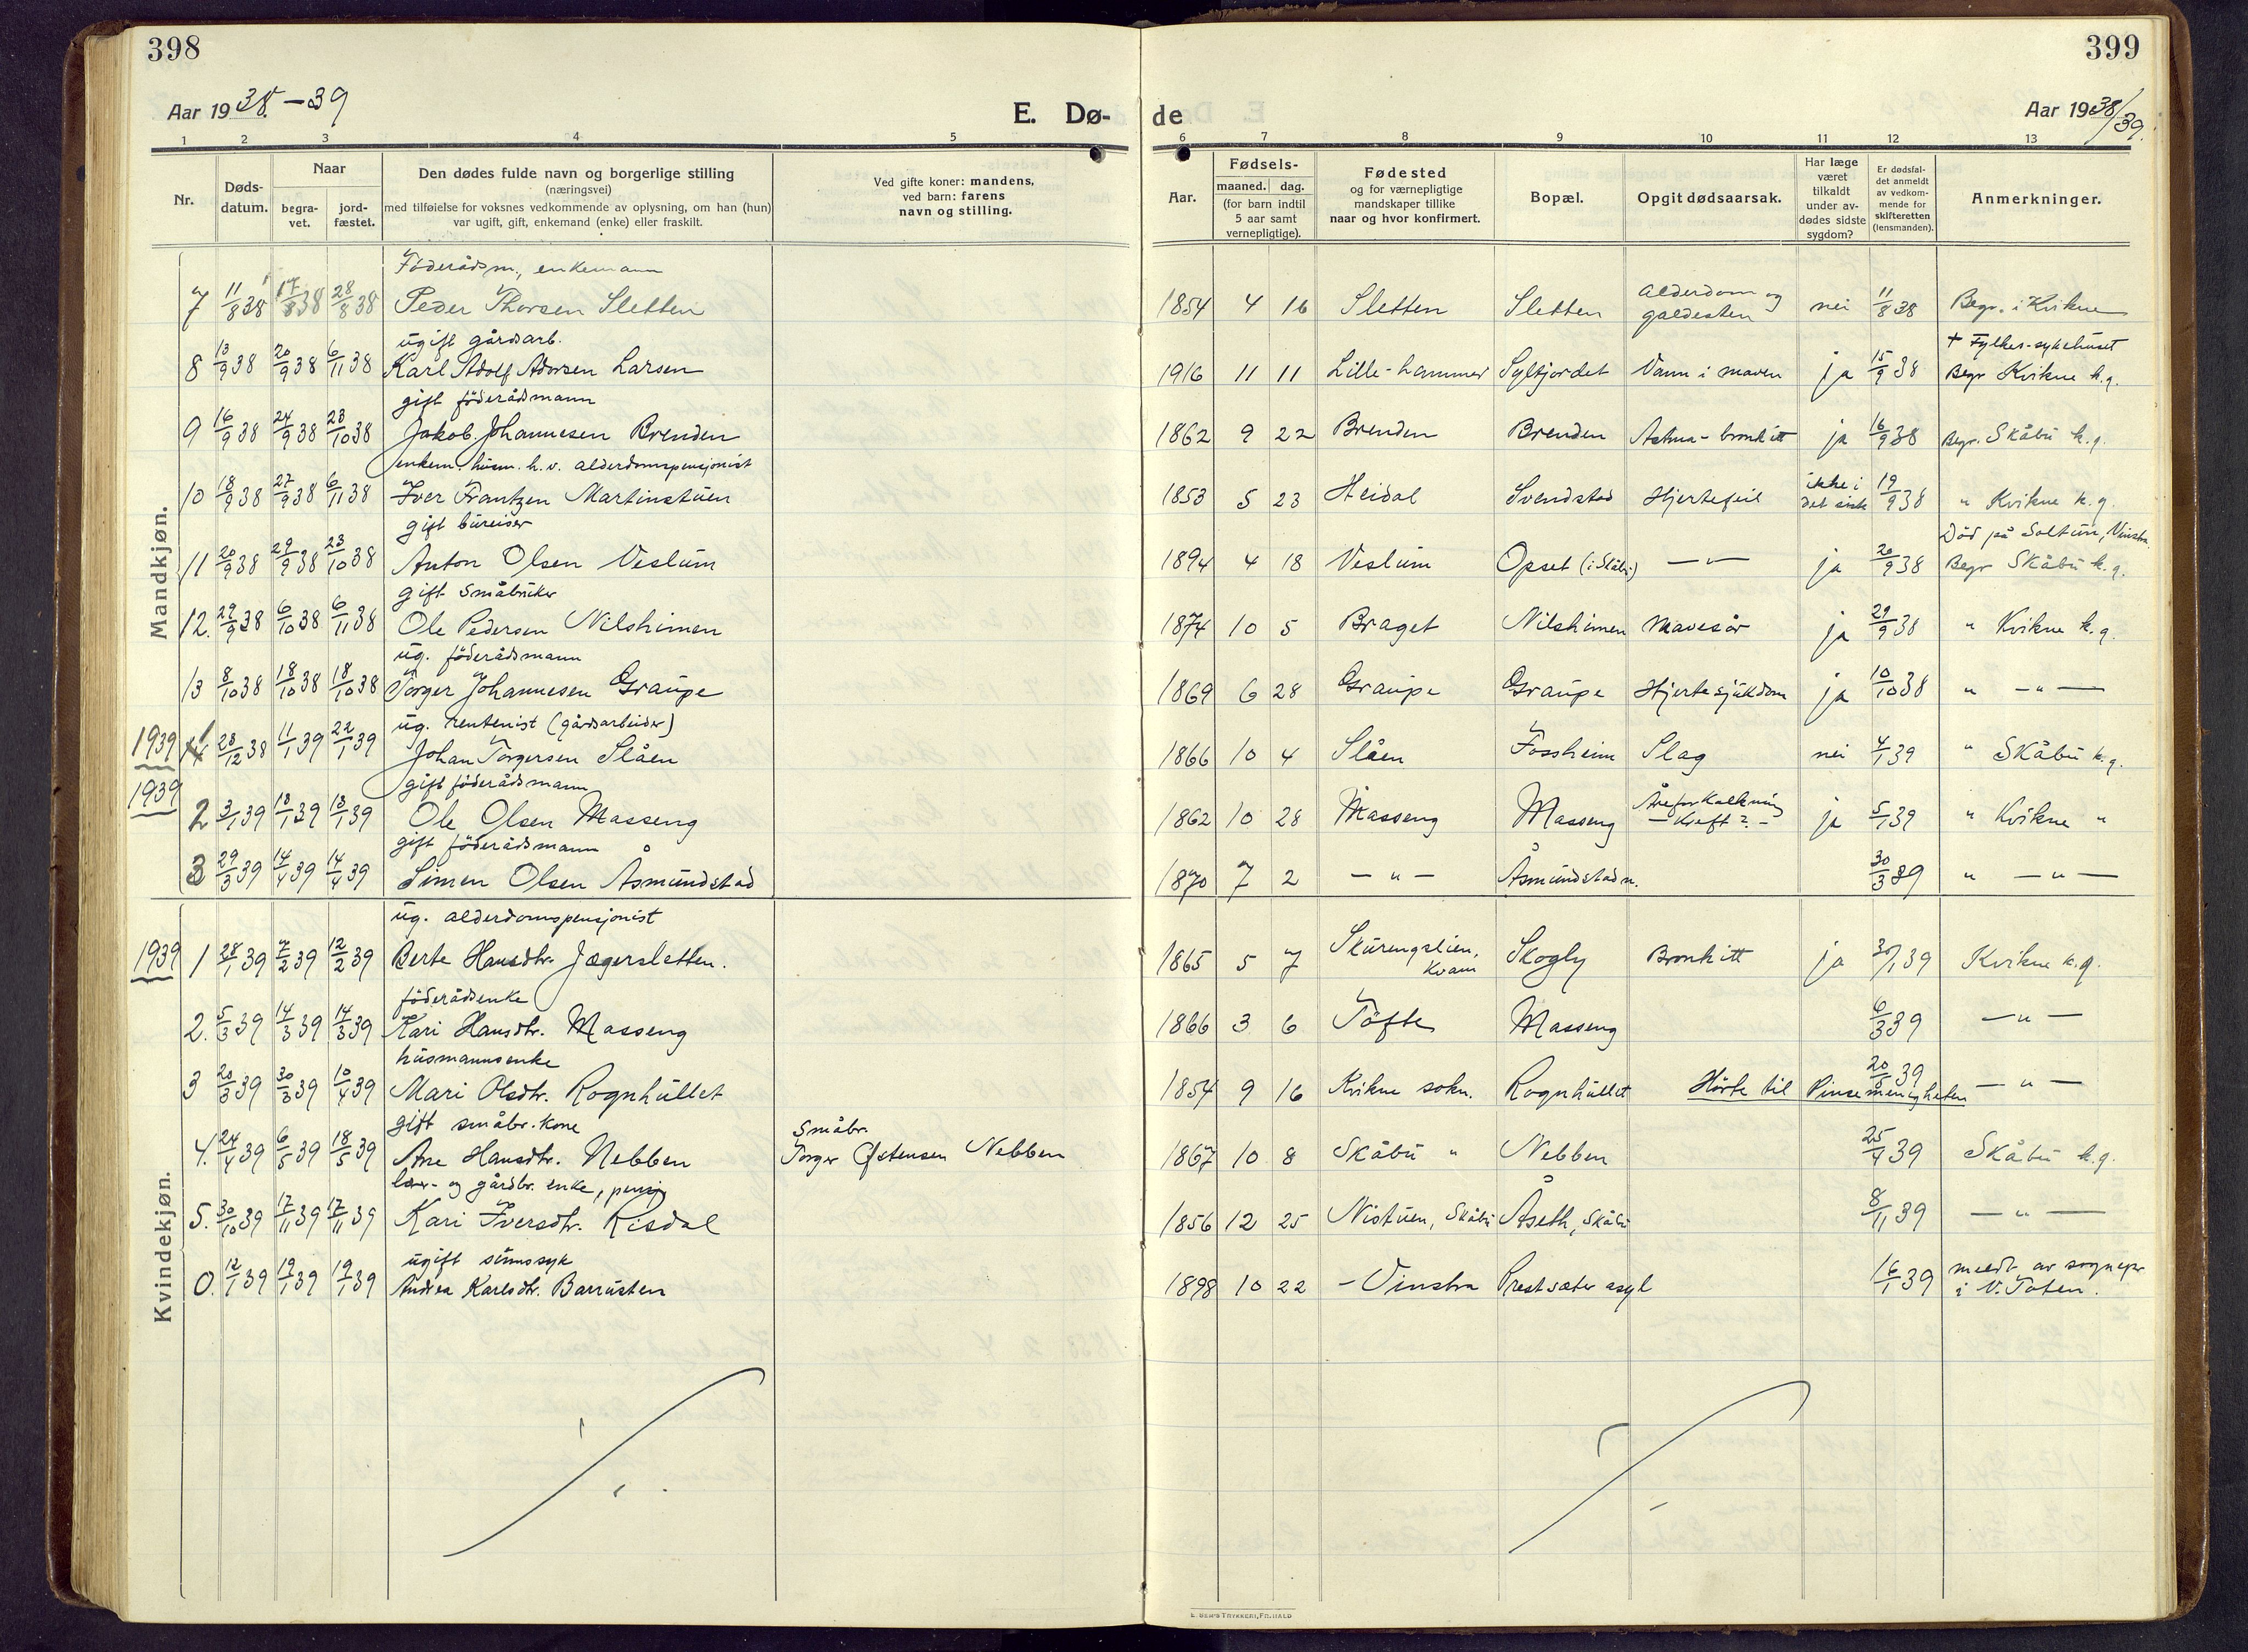 398
Aar 1938-39
E. Dø-
1 2 3 4 5
Nr.
Døds-
datum.
Naar
begra-
vet.
jord-
fæstet.
Den dødes fulde navn og borgerlige stilling
(næringsvei)
med tilføielse for voksnes vedkommende av oplysning, om han (hun)
var ugift, gift, enkemand (enke) eller fraskilt.
Ved gifte koner: mandens,
ved barn: farens
navn og stilling.
Mandkjøn.
Föderådsm., enkemann
7 11/8 38 17/8 38 28/8 38 Peder Thorsen Sletten
ugift gårdsarb.
8 13/9 38 20/9 38 6/11 38 Karl Adolf Larsen
gift föderådmann
9 16/9 38 24/9 38 23/10 38 Jakob Johannesen Brenden
enkem. husm. h.v. alderdomspensjonist
10 18/9 38 27/9 38 6/11 38 Iver Frantzen Martinstuen
gift bureiser
11 20/9 38 29/9 38 23/10 38 Anton Olsen Veslum
gift småbruker
12. 29/9 38 6/10 38 6/11 38 Ole Pedersen Nilshimen
ug. föderådsmann
13 8/10 38 18/10 38 18/10 38 Torger Johannesen Graupe
ug. rentenist (gårdsarbeider)
1939 1 28/12 38 11/1 39 22/1 39 Johan Torgersen Slåen
gift föderådmann
1939 2 3/1 39 13/1 39 13/1 39 Ole Olsen Masseng
gift föderådsmann
3 29/3 39 14/4 39 14/4 39 Simen Olsen Åsmundstad
Kvindekjøn.
ug. alderdomspensjonist
1939 1 28/1 39 7/2 39 12/2 39 Berte Hansdtr. Jægersletten.
föderådsenke
2. 5/3 39 14/3 39 14/3 39 Kari Hansdtr. Masseng
husmannsenke
3 20/3 39 30/3 39 10/4 39 Mari Olsdtr. Rognhullet
gift småbr. kone Småbr.
4. 24/4 39 6/5 39 18/5 39 Ane Hansdtr. Nebben Torger Østensen Nebben
og gårdbr. enke, pensj
5. 30/10 39 17/11 39 17/11 39 Kari Iversdtr. Risdal
ugift sinnssyk
0. 12/1 39 19/1 39 19/1 39 Andrea Karlsdtr. Barrusten
399
de
Aar 1938/39.
6 7 8 9 10 11 12 13
Aar.
Fødsels-
maaned. dag.
(for barn indtil
5 aar samt
vernepligtige).
Fødested
og for værnepligtige
mandskaper tillike
naar og hvor konfirmert.
Bopæl.
Opgit dødsaarsak.
Har læge
været
tilkaldt
under av-
dødes sidste
sygdom?
Er dødsfal-
det anmeldt
av vedkom-
mende for
skifteretten
(lensmanden).
Anmerkninger.
1854 4 16 Sletten Sletten alderdom og galdesten nei 11/8 38 Begr. i Kvikne
+ Fylkes-sykehuset
1916 11 11 Lille-hammer Syltjordet Vann i maven ja 15/9 38 Begr Kvikne k.g.
1862 9 22 Brenden Brenden Astma-bronkitt ja 16/9 38 Begr. Skåbu k.g.
1853 5 23 Heidal Svendstad Hjertefeil ikke i det siste 19/9 38 " Kvikne k.g.
Död på Soltun, Vinstra.
1894 4 18 Veslum Opset (i Skåbu) — " — ja 20/9 38 Begr Skåbu k.g.
1874 10 5 Braget Nilshimen Mavesår ja 29/9 38 " Kvikne k.g.
1869 6 28 Graupe Graupe Hjertesjukdom ja 10/10 38 " — " —
1866 10 4 Slåen Fossheim Slag nei 4/1 39 " Skåbu k.g.
1862 10 28 Masseng Masseng Åreforkalkning — Kreft? — ja 5/1 39 " Kvikne "
1870 7 2 — " — Åsmundstad n. 30/3 39 " — " —
1865 5 7 Skurengslien, Kvam Skogly Bronkitt ja 30/1 39 Kvikne k.g.
1866 3 6 Töfte Masseng 6/3 39 — " —
1854 9 16 Kvikne sokn. Rognhullet Hörte til Pinsemenigheten 20/3 39 — " —
1867 10 8 Skåbu " Nebben 25/4 39 Skåbu k.g.
1856 12 25 Nistuen, Skåbu Åseth, Skåbu 8/11 39 — " —
1898 10 22 - Vinstra Prestsæter asyl 16/1 39 meldt av sognepr i V. Toten.